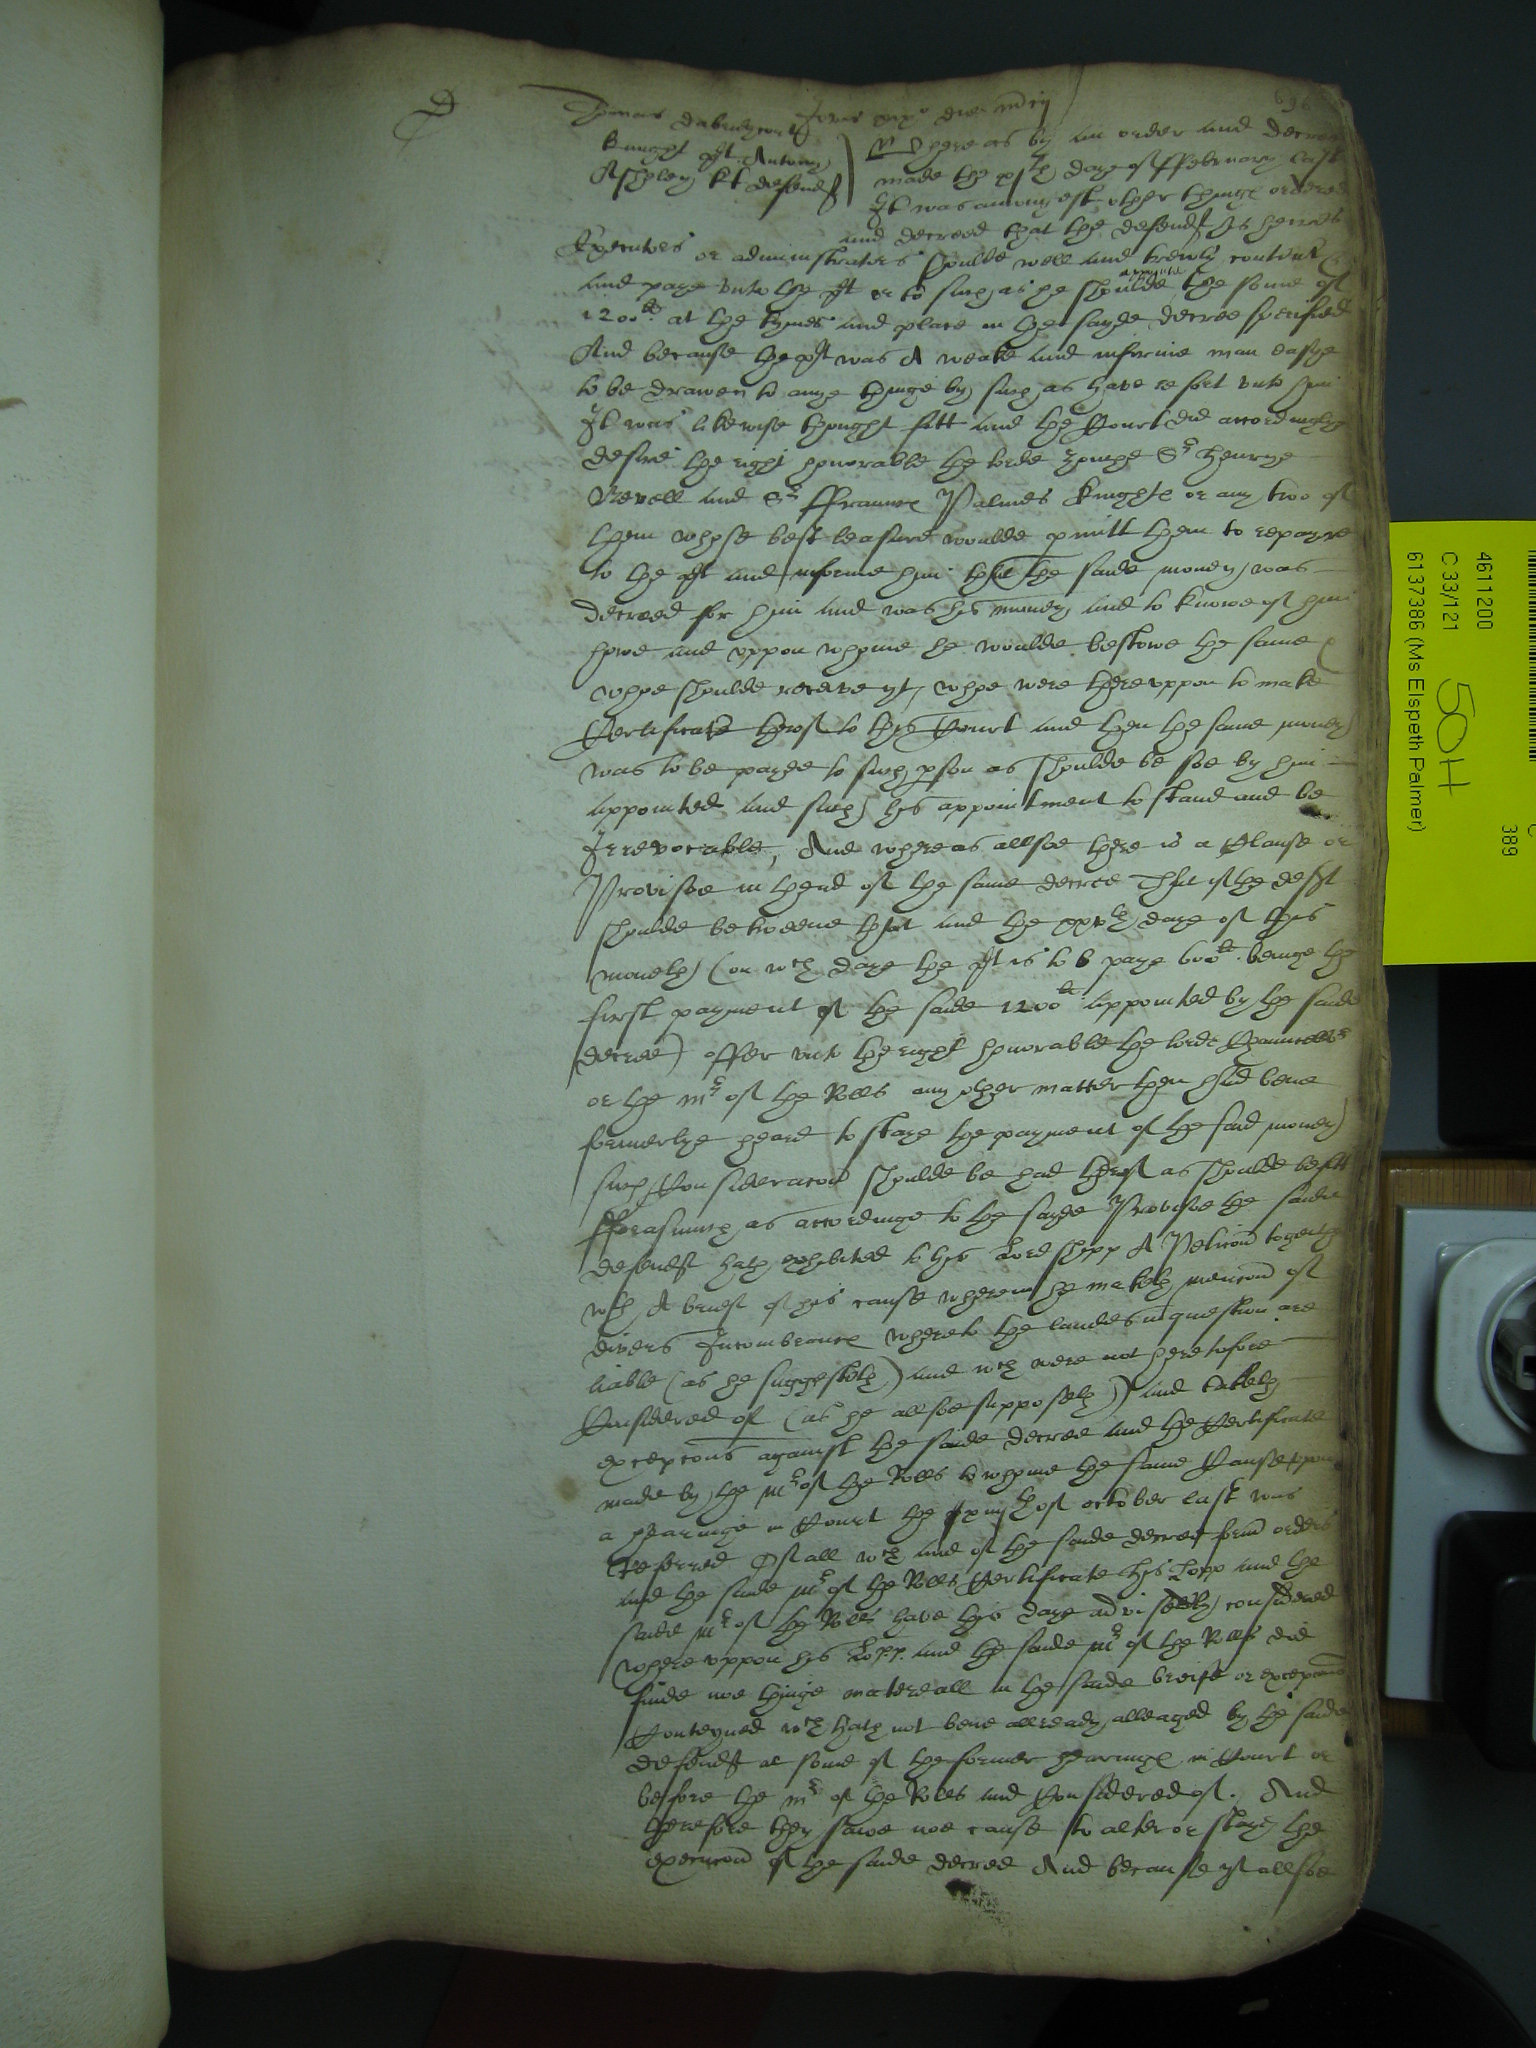 D
696
Jovis xxiijo die Martij
Thomas Dabridgcourt
knight plt Antony
Ashley kt defendt
Whereas by an order and decree
made the xjth daye of ffebruary last
It was amongest other things ordered
and decreed that the defendt his heires
Executors or administrators shoulde well and trewly content
and paye unto the plt or to such as he shoulde appoynte the some of
1200li at the tymes and place in the sayde decree specified
And because the plt was A weake and infirme man easye
to be drawen to anye thinge by such as have resort unto him
It was likewise thought fitt and the Court did accordinglye
desire the right honorable the lorde Zouche Sr Henrye
Nevell and Sr ffraunces Palmes knights or any two of
them whose best leasure woulde pmitt them to repayre
to the plt and informe him that the saide money was
decreed for him and was his money and to knowe of him
howe and uppon whome he woulde bestowe the same
whoe shoulde receave yt, whoe were thereuppon to make
Certificate therof to this Court and then the same money
was to be payde to such pson as shoulde be soe by him
appointed and such his appointment to stand and be
Irrevocable, And whereas allsoe there is a Clause or
Provisoe in thend of the same decree That if the deft
shoulde betweene that and the xxvth daye of this
moneth (on wch daye the plt is to b paye 600li beinge the
first payment of the saide 1200li appointed by the saide
decree) offer unto the right honorable the lorde Chauncellor
or the Mr of the Rolls any other matter then had bene
formerlye heard to staye the payment of the said money
such Consideracon shoulde be had therof as shoulde befitt
fforasmuch as accordinge to the sayde Provisoe the saide
defendt hath exhibited to his Lordshipp A Peticon togeither
wth A breif of his cause wherein he maketh mencon of
divers Incombraunces whereto the landes in question are
liable (as he suggesteth) and wch were not heretofore
Considered of (as he allsoe supposeth) and taketh
excepcons against the saide decree and the Certificate
made by the Mr of the Rolls to whome the same Cause uppon
a hearinge in Court the xxiiijth of october last was
Referred Of all wch and of the saide decree form orders
and the saide Mr of the Rolls Certificate his Lopp and the
saide Mr of the Rolls have this daye advisedly considered
whereuppon his Lopp and the saide Mr of the Rolls did
finde noe thinge matereall in the saide breife or excepcons
Conteyned wch hath not bene allready alleaged by the saide
defendt at some of the former hearings in Court or
before the Mr of the Rolls and Considered of. And
therefore they sawe noe cause to alter or staye the
execucon of the saide decree And because yt allsoe
4611200
C 33/121
6137386 (Ms Elspeth Palmer)
50H
389